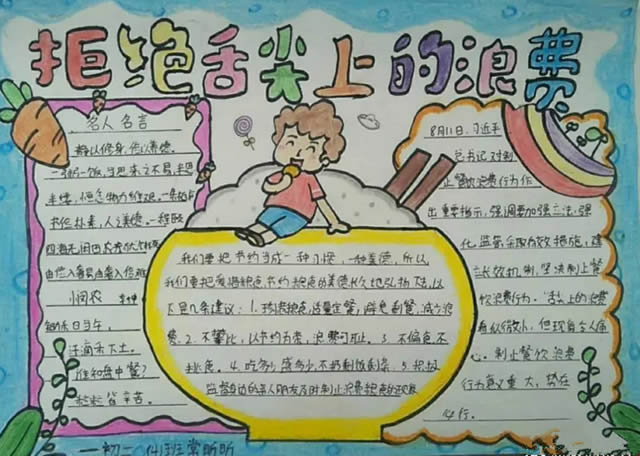 拒绝舌尖上的浪费
名人名言
静以修身,俭以养德。
一粥一饭,当思来之不易,半丝
半缕,恒念物力维艰。
四海无闲田,农夫犹饿死
由俭入奢易,由奢入俭难
悯农 李绅
锄禾日当午,
汗滴禾下土。
谁知盘中餐?
粒粒皆辛苦。
我们要把节约当成一种习惯,一种美德,所以,
我们要把爱惜粮食、节约粮食的美德长久地弘扬下去,以
下是几条建议:1.珍惜粮食,适量定餐,避免剩餐,减少浪
费.2.不攀比,以节约为荣,浪费可耻。3.不偏食,不
挑食。4.吃多少盛多少,不扔剩饭剩菜。5.积极
监督身边的亲人朋友及时制止浪费粮食的现象
8月11日,习近平
总书记对制
止餐饮浪费行为作
出重要指示,强调要加强立法,强
化监管,采取有效措施,建
立长效机制,坚决制止餐
饮浪费行为。舌尖上的浪费
看似微小,但现象令人痛
心。制止餐饮浪费
行为意义重大,势在
必行。
初一 (4)班 常昕昕